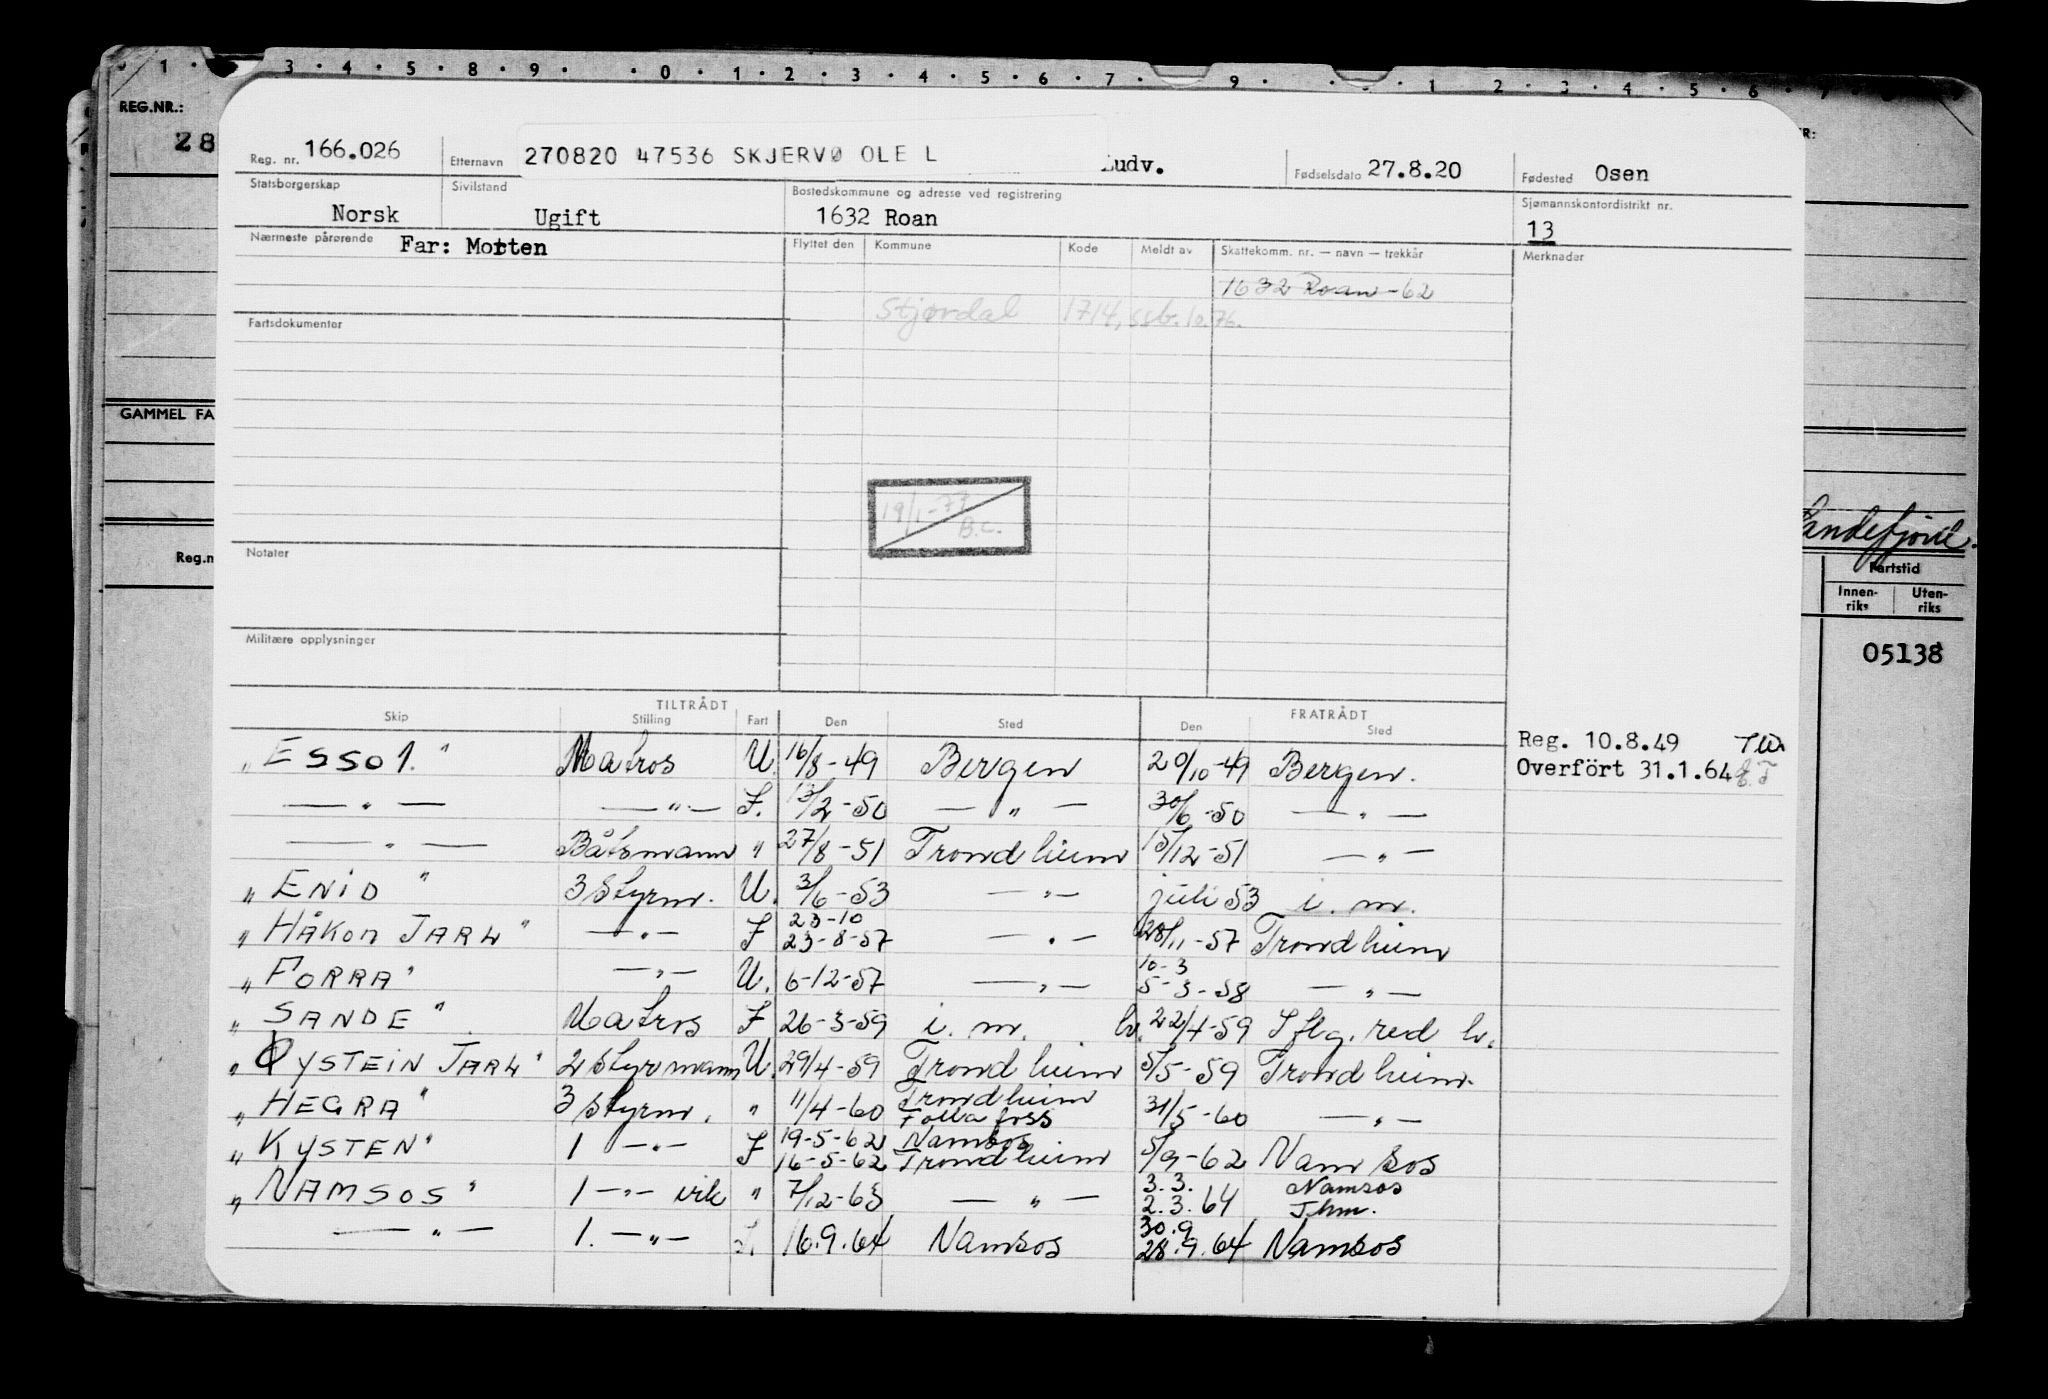 1 · 3 · 4 · 5 · 8 · 9 · 0 · 1 · 2 · 3 · 4 · 5 · 6 · 7 · 9 · 1 2 · 3 · 4 · 5 · 6 · 7
REG.NR.:
28
Reg. nr. 166.026 Etternavn 270820 47536 SKJERVØ OLE L Ludv. Fødselsdato 27.8.20 Fødested Osen
Statsborgerskap Sivilstand Bostedskommune og adresse ved registrering Sjømannskontordistrikt nr.
Norsk Ugift 1632 Roan 13
Nærmeste pårørende Far: Morten Flyttet den Kommune Kode Meldt av Skattekomm. nr. — navn — trekkår Merknader
1632 Roan -62
Stjørdal 1714, ssb. 10.76.
Fartsdokumenter
GAMMEL FA
19/1-77
B.C.
Sandefjord.
Notater
Reg.n
Fartstid
Innen-riks Uten-riks
Militære opplysninger
05138
TILTRÅDT FRATRÅDT
Skip Stilling Fart Den Sted Den Sted
"ESSO 1." Matros U. 16/8-49 Bergen 20/10-49 Bergen. Reg. 10.8.49
Overført 31.1.64
— " — — " — F. 13/2-50 — " — 30/6-50 — " —
— " — Båtsmann " 27/8-51 Trondheim 15/12-51 — " —
"ENID" 3 Styrm. U. 3/6-53 — " — juli 53 i. m.
"HÅKON JARL" — " — F 23-10
23-8-57 — " — 28/11-57 Trondheim
"FORRA" — " — U. 6-12-57 — " — 10-3
5-3-58 — " —
"SANDE" Matros F 26-3-59 i. m. lv. 22/4-59 Sflg. red lv.
"ØYSTEIN JARL" 2 Styrmann U. 29/4-59 Trondheim 5/5-59 Trondheim.
"HEGRA" 3 Styrm. " 11/4-60 Trondheim
Follafoss 31/5-60 — " —
"KYSTEN" 1 — " — F 19-5-62 Namsos
16-5-62 Trondheim 5/9-62 Namsos
"NAMSOS" 1 — " — vik " 7/12-63 — " — 3.3.
2.3.64 Namsos
Thm.
— " — 1. — " — 16.9.64 Namsos 30.9
28.9.64 Namsos